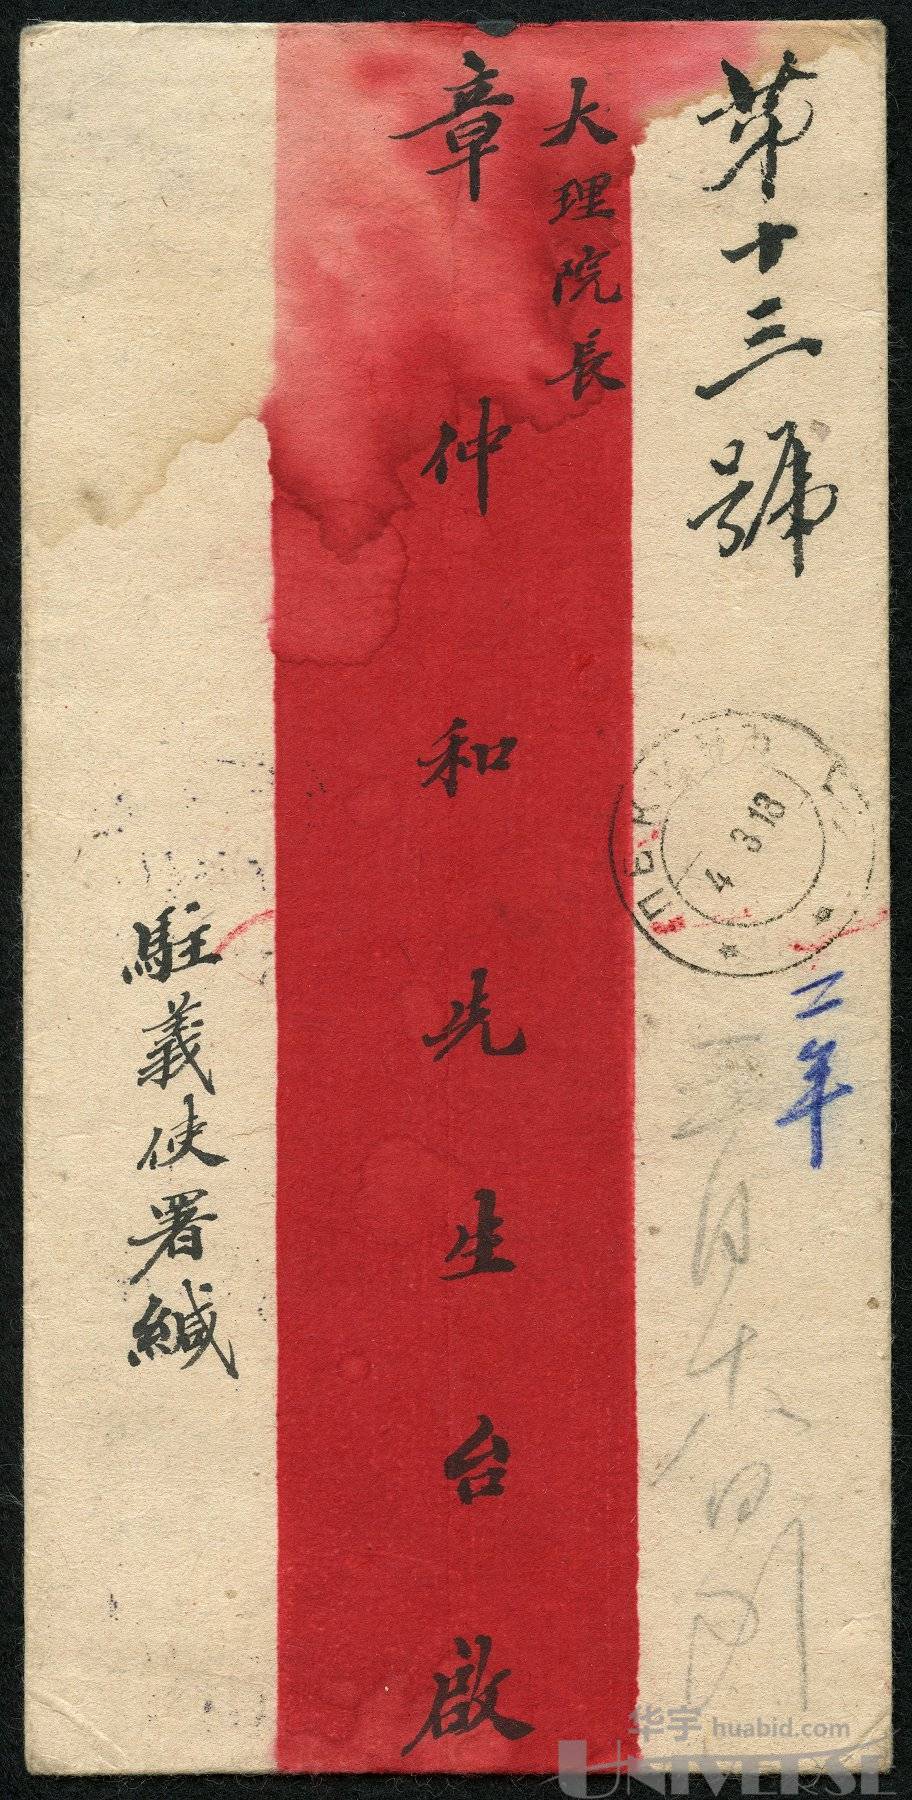 第十三號
大理院長
章仲和先生台啟
駐義使署緘
ПЕК
4 3 13
二年
三月十六日到
华宇 huabid.com
UNIVERSE